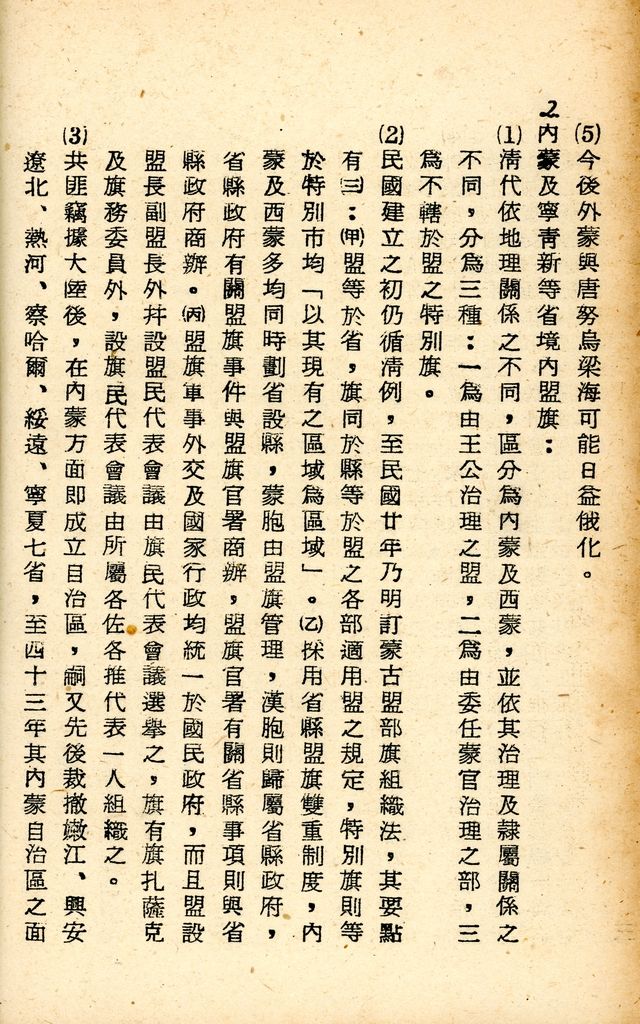 (5)今後外蒙與唐努烏梁海可能日益俄化。
2內蒙及寧青新等省境內盟旗：
(1)清代依地理關係之不同，區分爲內蒙及西蒙，並依其治理及隸屬關係之
不同，分爲三種：一爲由王公治理之盟，二爲由委任蒙官治理之部，三
爲不轄於盟之特別旗。
(2)民國建立之初仍循清例，至民國廿年乃明訂蒙古盟部旗組織法，其要點
有㈢：㈠盟等於省，旗同於縣等於盟之各部適用盟之規定，特別旗則等
於特別市均「以其現有之區域爲區域」。㈡採用省縣盟旗雙重制度，內
蒙及西蒙多均同時劃省設縣，蒙胞由盟旗管理，漢胞則歸屬省縣政府，
省縣政府有關盟旗事件與盟旗官署商辦，盟旗官署有關省縣事項則與省
縣政府商辦。㈢盟旗軍事外交及國家行政均統一於國民政府，而且盟設
盟長副盟長外幷設盟民代表會議由旗民代表會議選舉之，旗有旗扎薩克
及旗務委員外，設旗民代表會議由所屬各佐各推代表一人組織之。
(3)共匪竊據大陸後，在內蒙方面即成立自治區，嗣又先後裁撤嫩江、興安
遼北、熱河、察哈爾、綏遠、寧夏七省，至四十三年其內蒙自治區之面